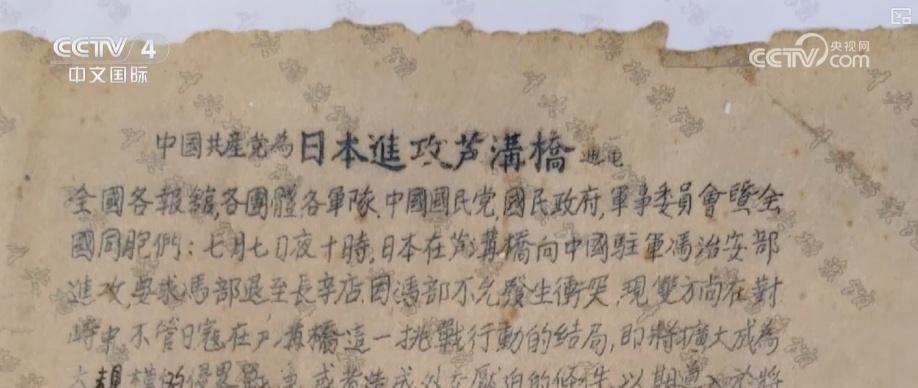 CCTV 4
中文国际
央视网
CCTV.com
中國共産党為日本進攻芦溝橋通電
全國各報舘,各團體各軍隊,中國國民党,國民政府,軍事委員會暨全
國同胞們:七月七日夜十時,日本在芦溝橋向中國駐軍馮治安部
進攻,要求馮部退至長辛店,因馮部不允發生衝突,現雙方尚在對
峙中,不管日寇在芦溝橋這一挑戰行動的結局,即將擴大成為
大規模的侵畧戰爭,或者造成外交壓迫的條件,以期導入於將